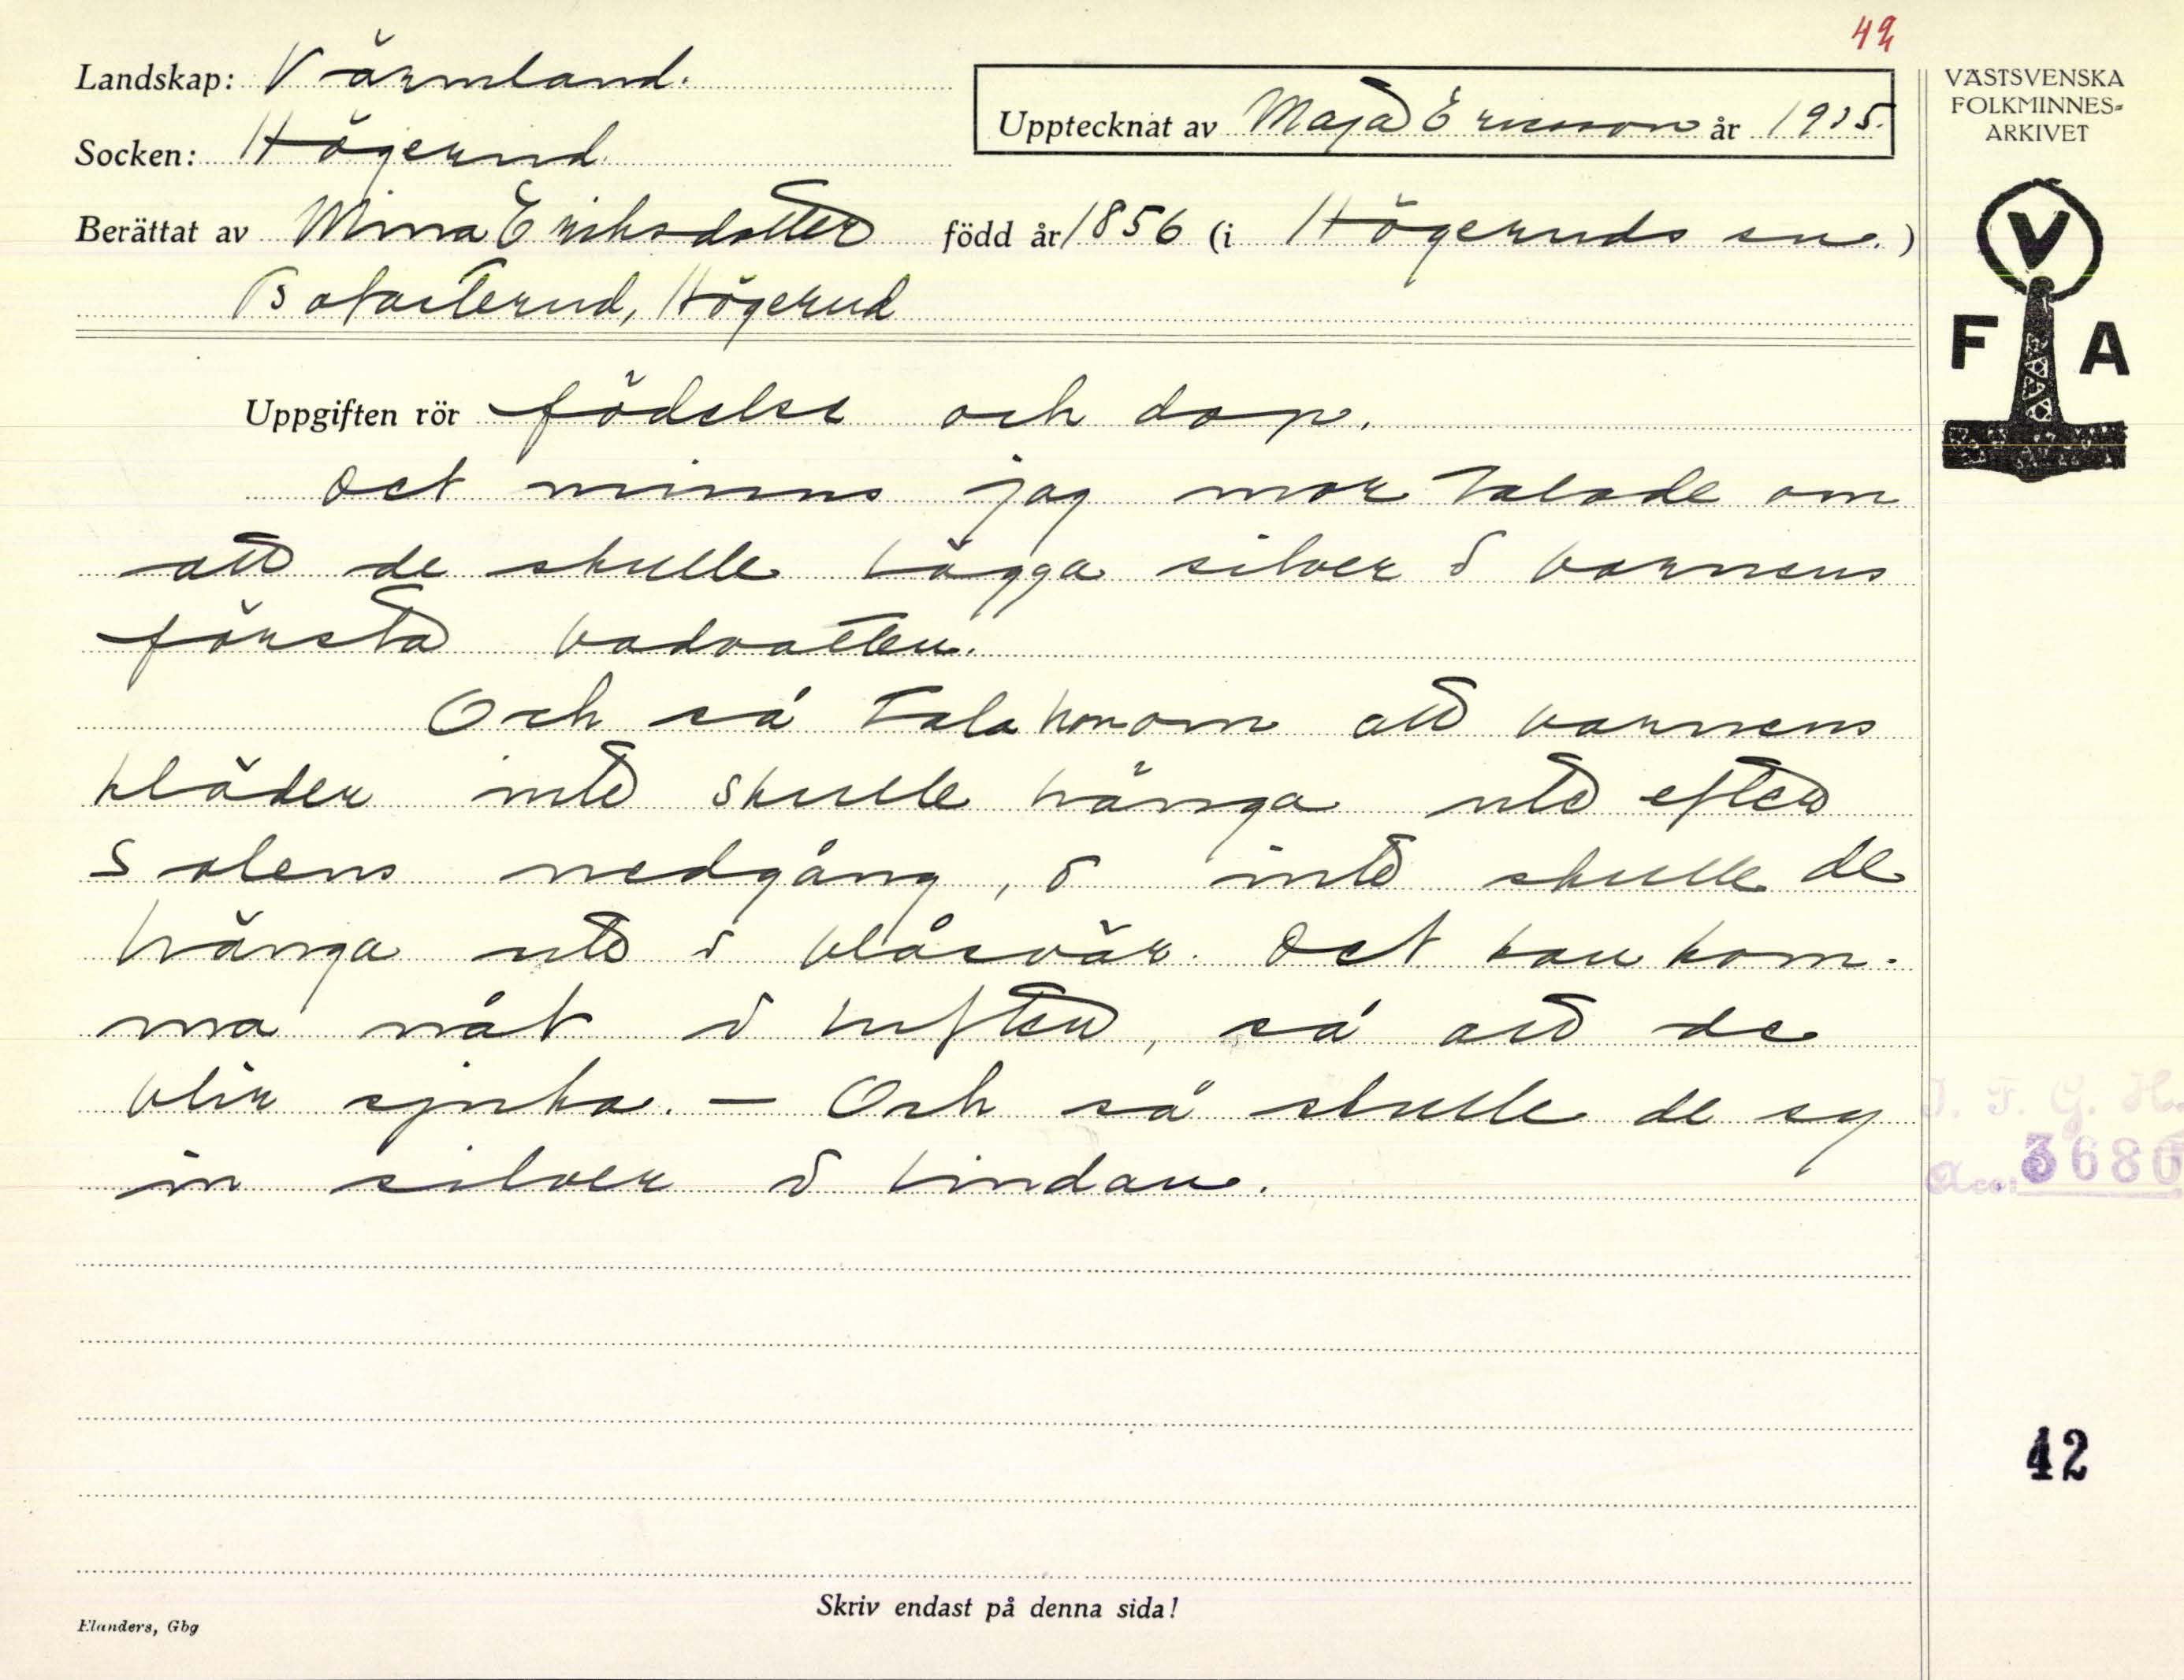 42
Landskap: Värmland.
Socken: Högerud.
Upptecknat av Maja Ericsson år 1935.
Berättat av Mina Eriksdotter född år 1856 (i Högeruds sn.)
Högerud
VÄSTSVENSKA
FOLKMINNES=
ARKIVET
V
F A
Uppgiften rör födelse och dop.
Det minns jag mor talade om
att de skulle lägga silver i barnens
första badvatten.
Och så tala hon om att barnens
kläder inte skulle hänga ute efter
solens nedgång, o inte skulle de
hänga ute i blåsvär. Det kan kom-
ma nåt i luften, så att de
blir sjuka. – Och så skulle de sy
in silver i lindan.
I. F. G. H.
Acc. 3680
42
Skriv endast på denna sida!
Elanders, Gbg